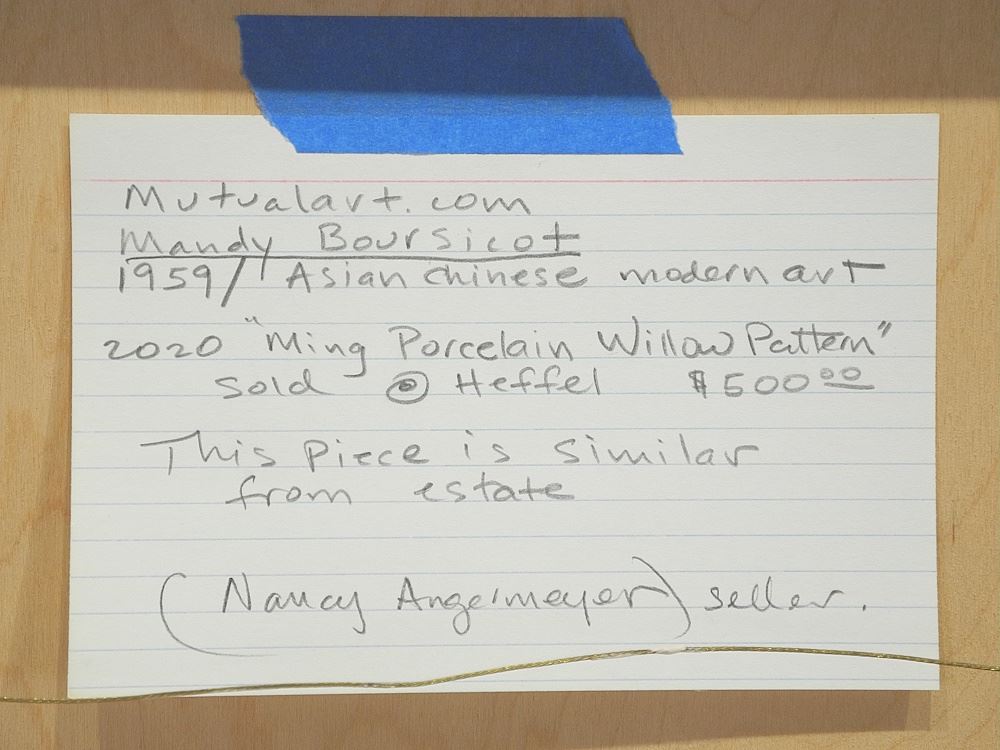 Mutualart.com
Mandy Boursicot
1959/ Asian chinese modern art
2020 "Ming Porcelain Willow Pattern"
sold @ Heffel $500.00
This piece is similar
from estate
(Nancy Angelmeyer) seller.